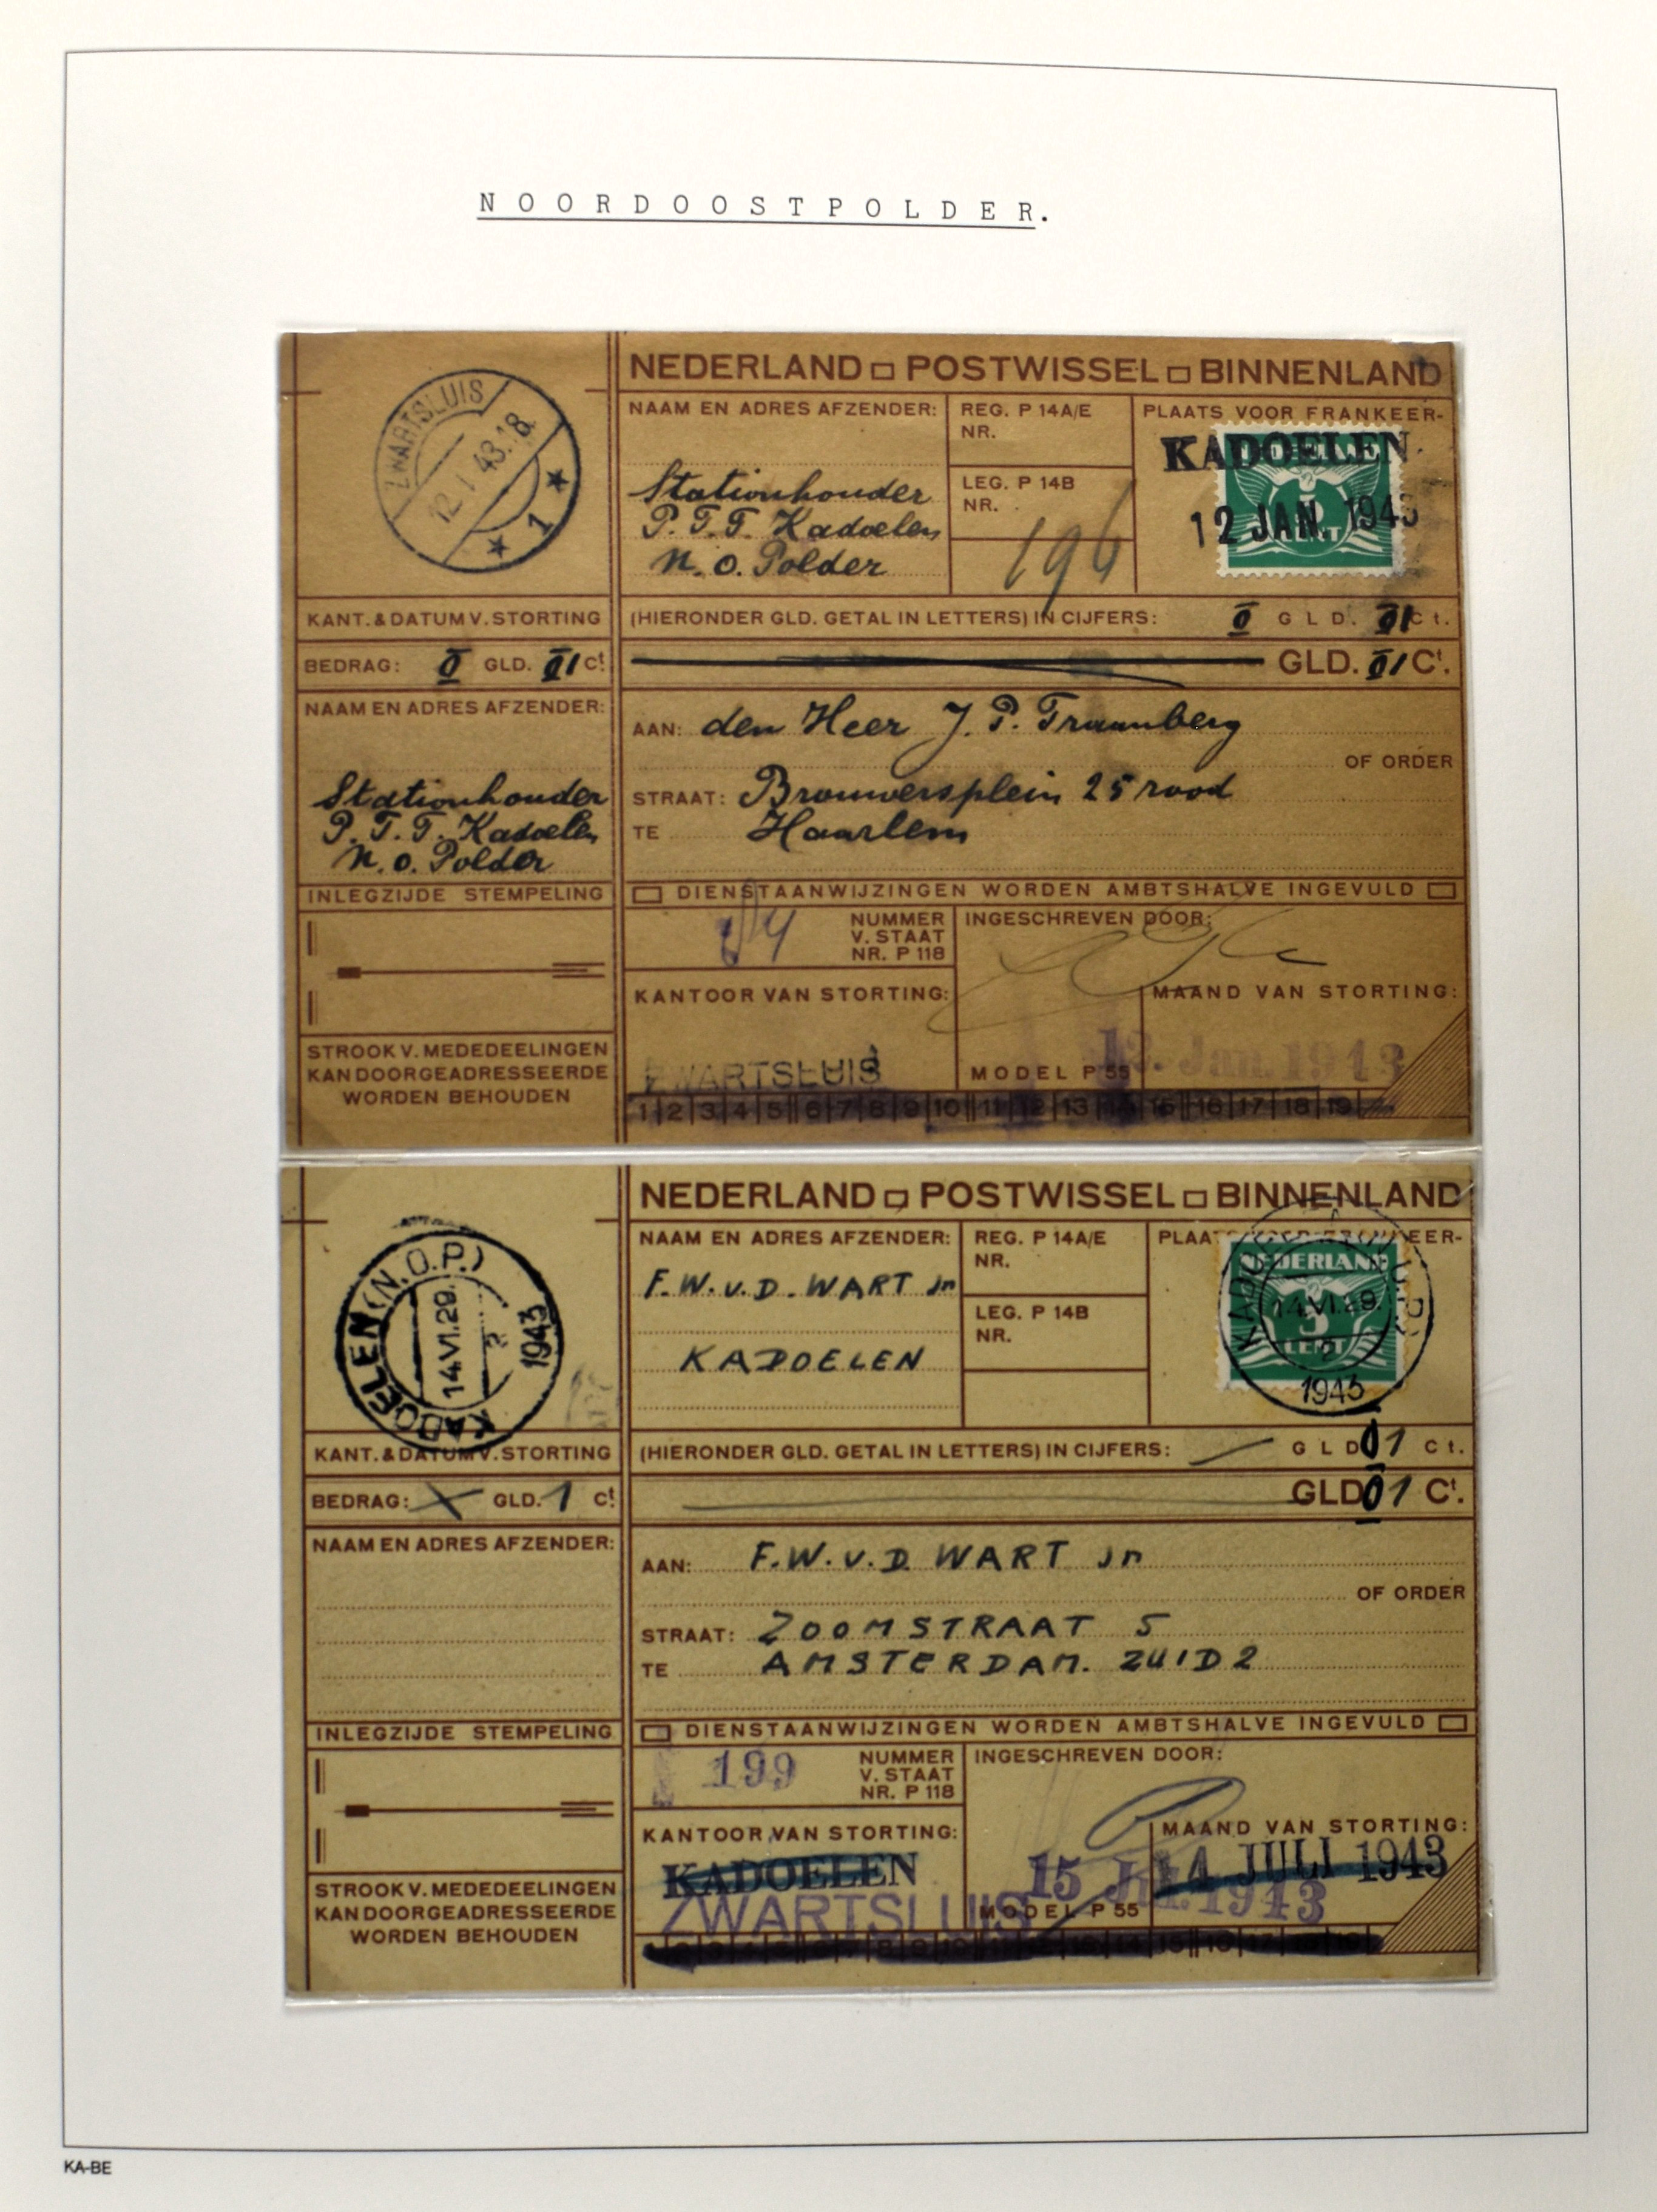 NOORDOOSTPOLDER.
NEDERLAND POSTWISSEL BINNENLAND
ZWARTSLUIS
12.I.43.18
1
NAAM EN ADRES AFZENDER:
Stationhouder
P.T.T. Kadoelen
N.O. Polder
REG. P 14A/E
NR.
LEG. P 14B
NR.
196
PLAATS VOOR FRANKEER-
KADOELEN
12 JAN. 1943
KANT. & DATUM V. STORTING
(HIERONDER GLD. GETAL IN LETTERS) IN CIJFERS: 0 GLD. 01 Ct.
BEDRAG: 0 GLD. 01 Ct.
GLD. 01 Ct.
NAAM EN ADRES AFZENDER:
Stationhouder
P.T.T. Kadoelen
N.O. Polder
AAN: den Heer J. P. Traanberg
OF ORDER
STRAAT: Brouwersplein 25 rood
TE Haarlem
INLEGZIJDE STEMPELING
DIENSTAANWIJZINGEN WORDEN AMBTSHALVE INGEVULD
NUMMER
V. STAAT
NR. P 118
INGESCHREVEN DOOR:
KANTOOR VAN STORTING:
ZWARTSLUIS
MAAND VAN STORTING:
Jan. 1943
MODEL P 55
STROOK V. MEDEDEELINGEN
KAN DOORGEADRESSEERDE
WORDEN BEHOUDEN
1 2 3 4 5 6 7 8 9 10 11 12 13 14 15 16 17 18 19
NEDERLAND POSTWISSEL BINNENLAND
KADOELEN (N.O.P.)
14.VI.29.
2
1943
NAAM EN ADRES AFZENDER:
F.W.v.D. WART Jn
KADOELEN
REG. P 14A/E
NR.
LEG. P 14B
NR.
PLAATS VOOR FRANKEER-
NEDERLAND
3
CENT
KADOELEN (N.O.P.)
14.VI.29.
2
1943
KANT. & DATUM V. STORTING
(HIERONDER GLD. GETAL IN LETTERS) IN CIJFERS: GLD 01 Ct.
BEDRAG: GLD. 1 Ct.
GLD 01 Ct.
NAAM EN ADRES AFZENDER:
AAN: F.W.v.D WART Jn
OF ORDER
STRAAT: ZOOMSTRAAT 5
TE AMSTERDAM. ZUID 2
INLEGZIJDE STEMPELING
DIENSTAANWIJZINGEN WORDEN AMBTSHALVE INGEVULD
199
NUMMER
V. STAAT
NR. P 118
INGESCHREVEN DOOR:
KANTOOR VAN STORTING:
KADOELEN
ZWARTSLUIS
MAAND VAN STORTING:
14 JULI 1943
15 Jul. 1943
MODEL P 55
STROOK V. MEDEDEELINGEN
KAN DOORGEADRESSEERDE
WORDEN BEHOUDEN
KA-BE